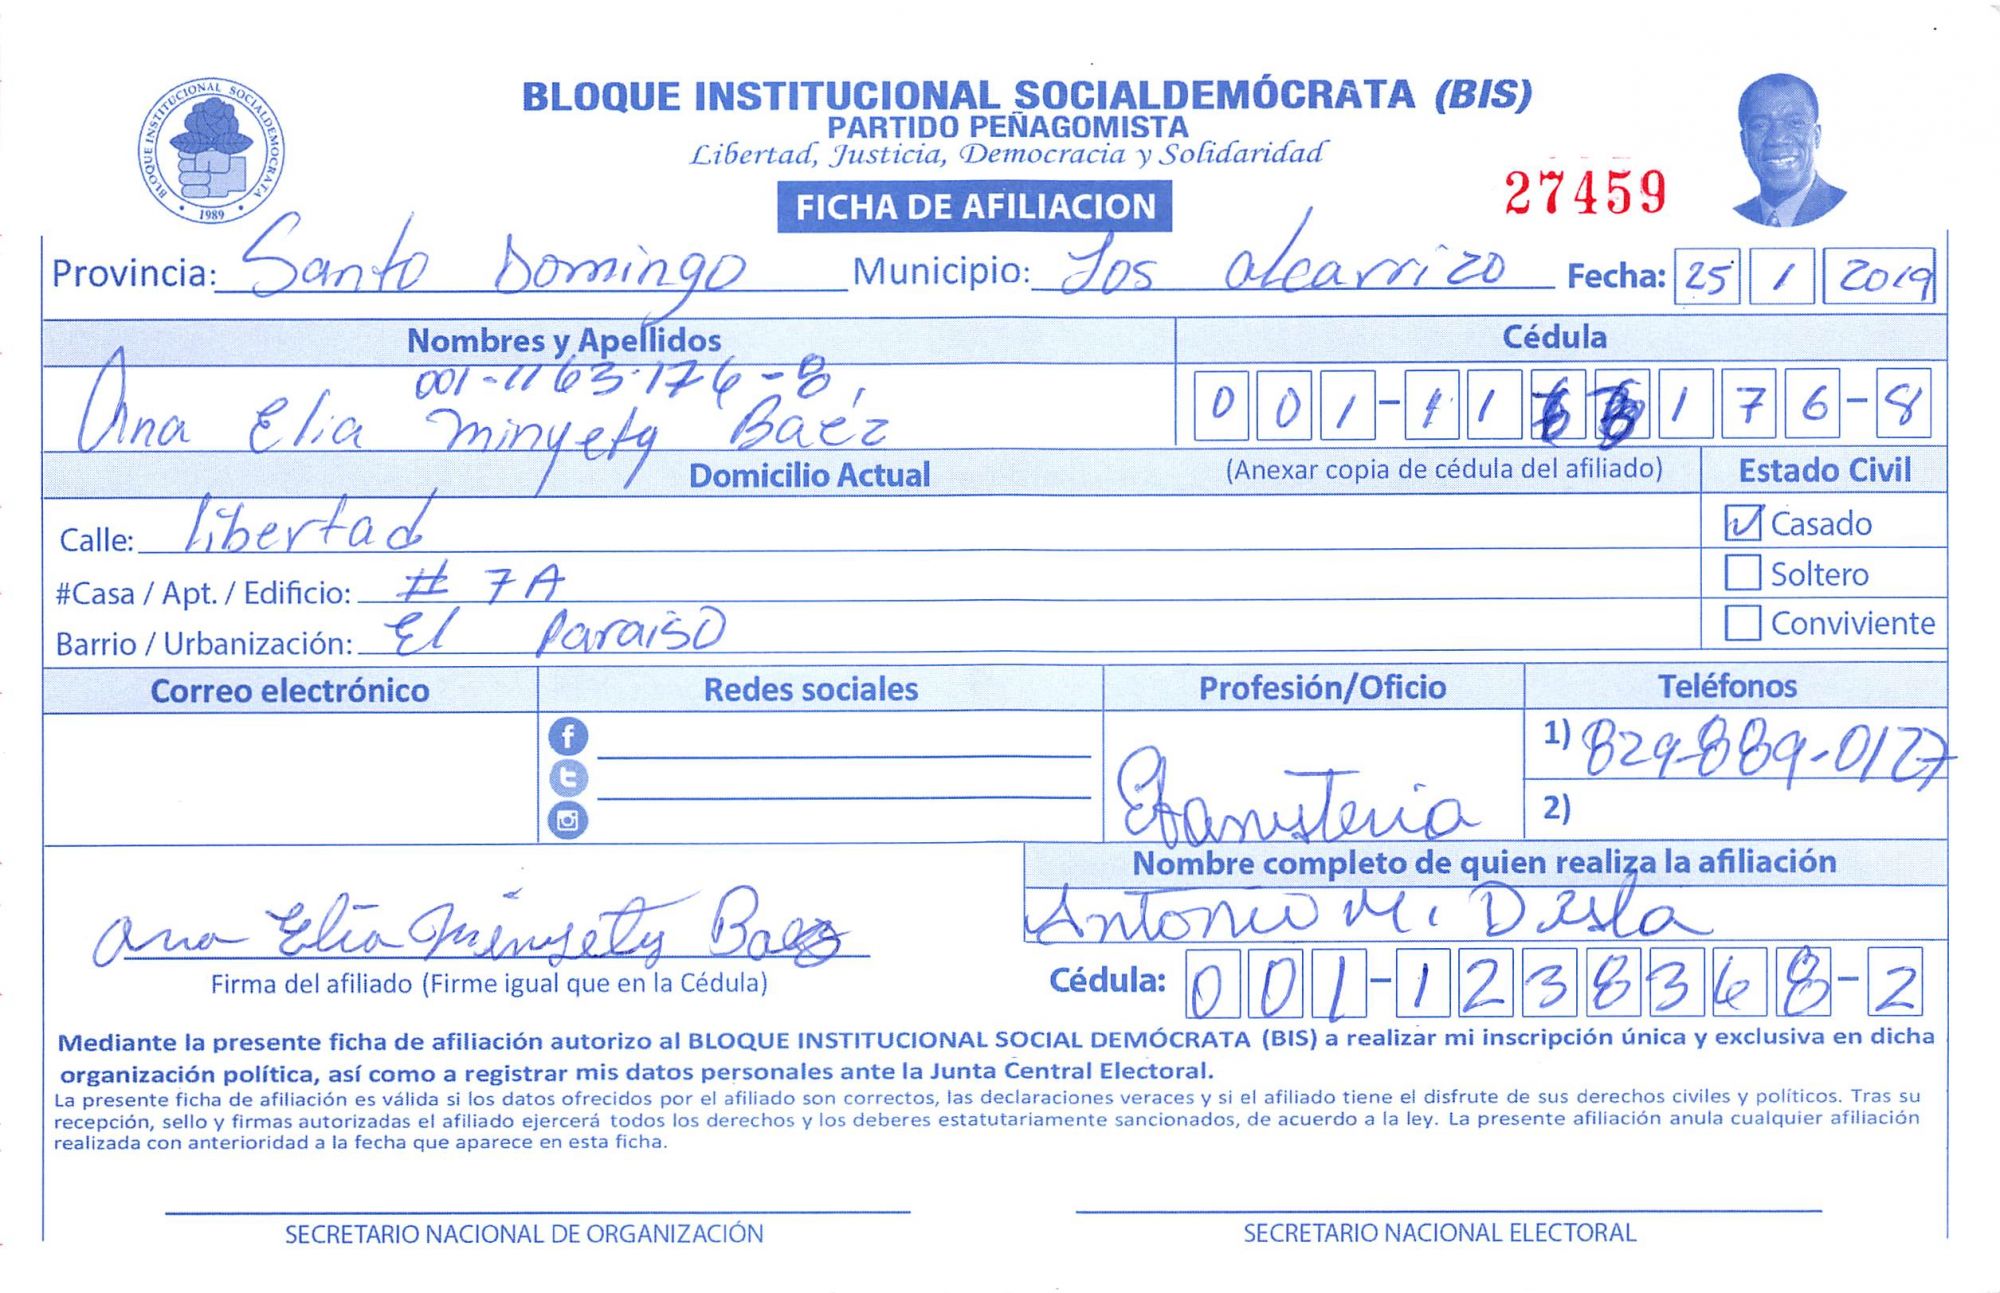 BLOQUE INSTITUCIONAL SOCIALDEMOCRATA
1989
BLOQUE INSTITUCIONAL SOCIALDEMÓCRATA (BIS)
PARTIDO PEÑAGOMISTA
Libertad, Justicia, Democracia y Solidaridad
FICHA DE AFILIACION
27459
Provincia: Santo Domingo Municipio: Los alcarrizo Fecha: 25 1 2019
Nombres y Apellidos Cédula
001-1163176-8
Ana Elia minyety Baéz 001-1163176-8
Domicilio Actual (Anexar copia de cédula del afiliado) Estado Civil
Calle: libertad Casado
#Casa / Apt. / Edificio: # 7A Soltero
Barrio / Urbanización: El Paraiso Conviviente
Correo electrónico Redes sociales Profesión/Oficio Teléfonos
1) 829-889-0127
Ebanisteria 2)
Nombre completo de quien realiza la afiliación
Ana Elia Minyety Baez Antonio M.
Firma del afiliado (Firme igual que en la Cédula) Cédula: 001-1238368-2
Mediante la presente ficha de afiliación autorizo al BLOQUE INSTITUCIONAL SOCIAL DEMÓCRATA (BIS) a realizar mi inscripción única y exclusiva en dicha
organización política, así como a registrar mis datos personales ante la Junta Central Electoral.
La presente ficha de afiliación es válida si los datos ofrecidos por el afiliado son correctos, las declaraciones veraces y si el afiliado tiene el disfrute de sus derechos civiles y políticos. Tras su
recepción, sello y firmas autorizadas el afiliado ejercerá todos los derechos y los deberes estatutariamente sancionados, de acuerdo a la ley. La presente afiliación anula cualquier afiliación
realizada con anterioridad a la fecha que aparece en esta ficha.
SECRETARIO NACIONAL DE ORGANIZACIÓN SECRETARIO NACIONAL ELECTORAL